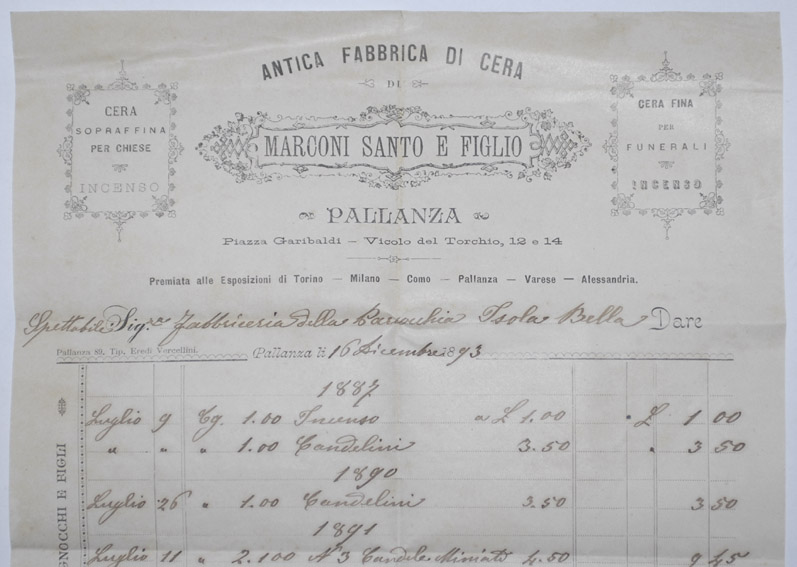 ANTICA FABBRICA DI CERA
DI
MARCONI SANTO E FIGLIO
PALLANZA
Piazza Garibaldi — Vicolo del Torchio, 12 e 14
CERA
SOPRAFFINA
PER CHIESE
INCENSO
CERA FINA
PER
FUNERALI
INCENSO
Premiata alle Esposizioni di Torino — Milano — Como — Pallanza — Varese — Alessandria.
Spettabile Sig.ra Fabbriceria della Parrocchia Isola Bella Dare
Pallanza 89, Tip. Eredi Vercellini.
Pallanza li 16 Dicembre 1893
1887
Luglio 9 Cg. 1.00 Incenso a £ 1.00 " £ 1 00
" " " 1.00 Candelini 3.50 " 3 50
1890
Luglio 26 " 1.00 Candelini 3.50 3 50
1891
Luglio 11 " 2.100 N° 3 Candele Miniate 4.50 9 45
GNOCCHI E FIGLI